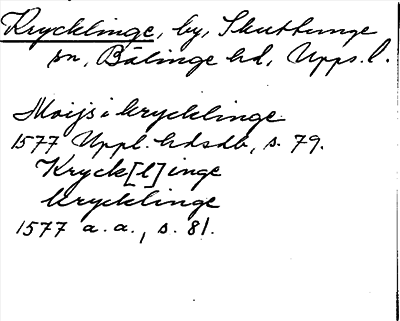 Krycklinge, by, Skuttunge
sn, Bälinge hd, Upps. l.
Moijs i krycklinge
1577 Uppl. hdsdb, s. 79.
Kryck[l]inge
krycklinge
1577 a. a., s. 81.